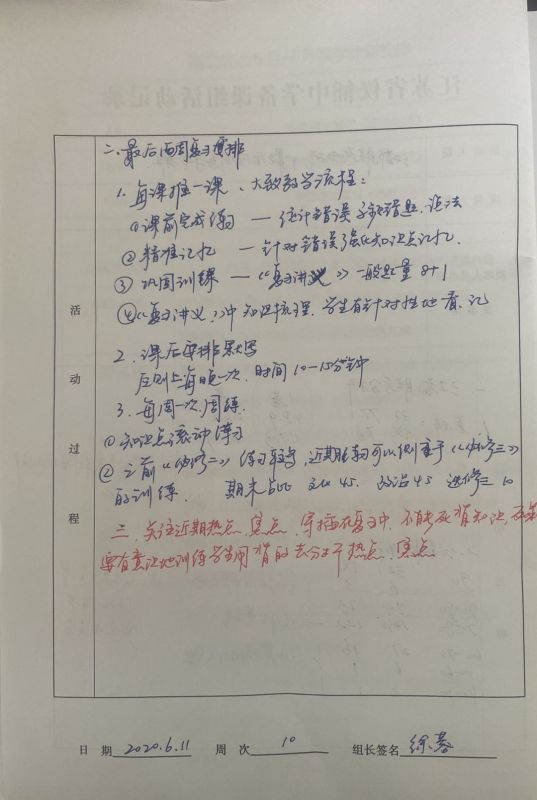 二、最后两周复习安排
1. 每课推一课、大致教学流程：
①课前完成练习 — 统计错误
②精准记忆 — 针对错误强化知识点记忆.
③ 巩固训练 — 《复习讲义》一般题量 8+1
④《复习讲义》中知识梳理. 学生有针对性地看、记
2. 课后安排默写
原则上每日一次. 时间10—15分钟
3. 每周一次周练.
①知识点滚动练习
②之前《必修二》练习较多, 近期练习可以侧重于《必修三》
的训练. 期末占比 文化45. 政治45 选修三 10
三. 关注近期热点、焦点. 穿插在复习中. 不能死背知识,
要有意识地训练学生用背的去分析热点、焦点
活动过程
日 期 2020.6.11 周 次 10 组长签名 徐